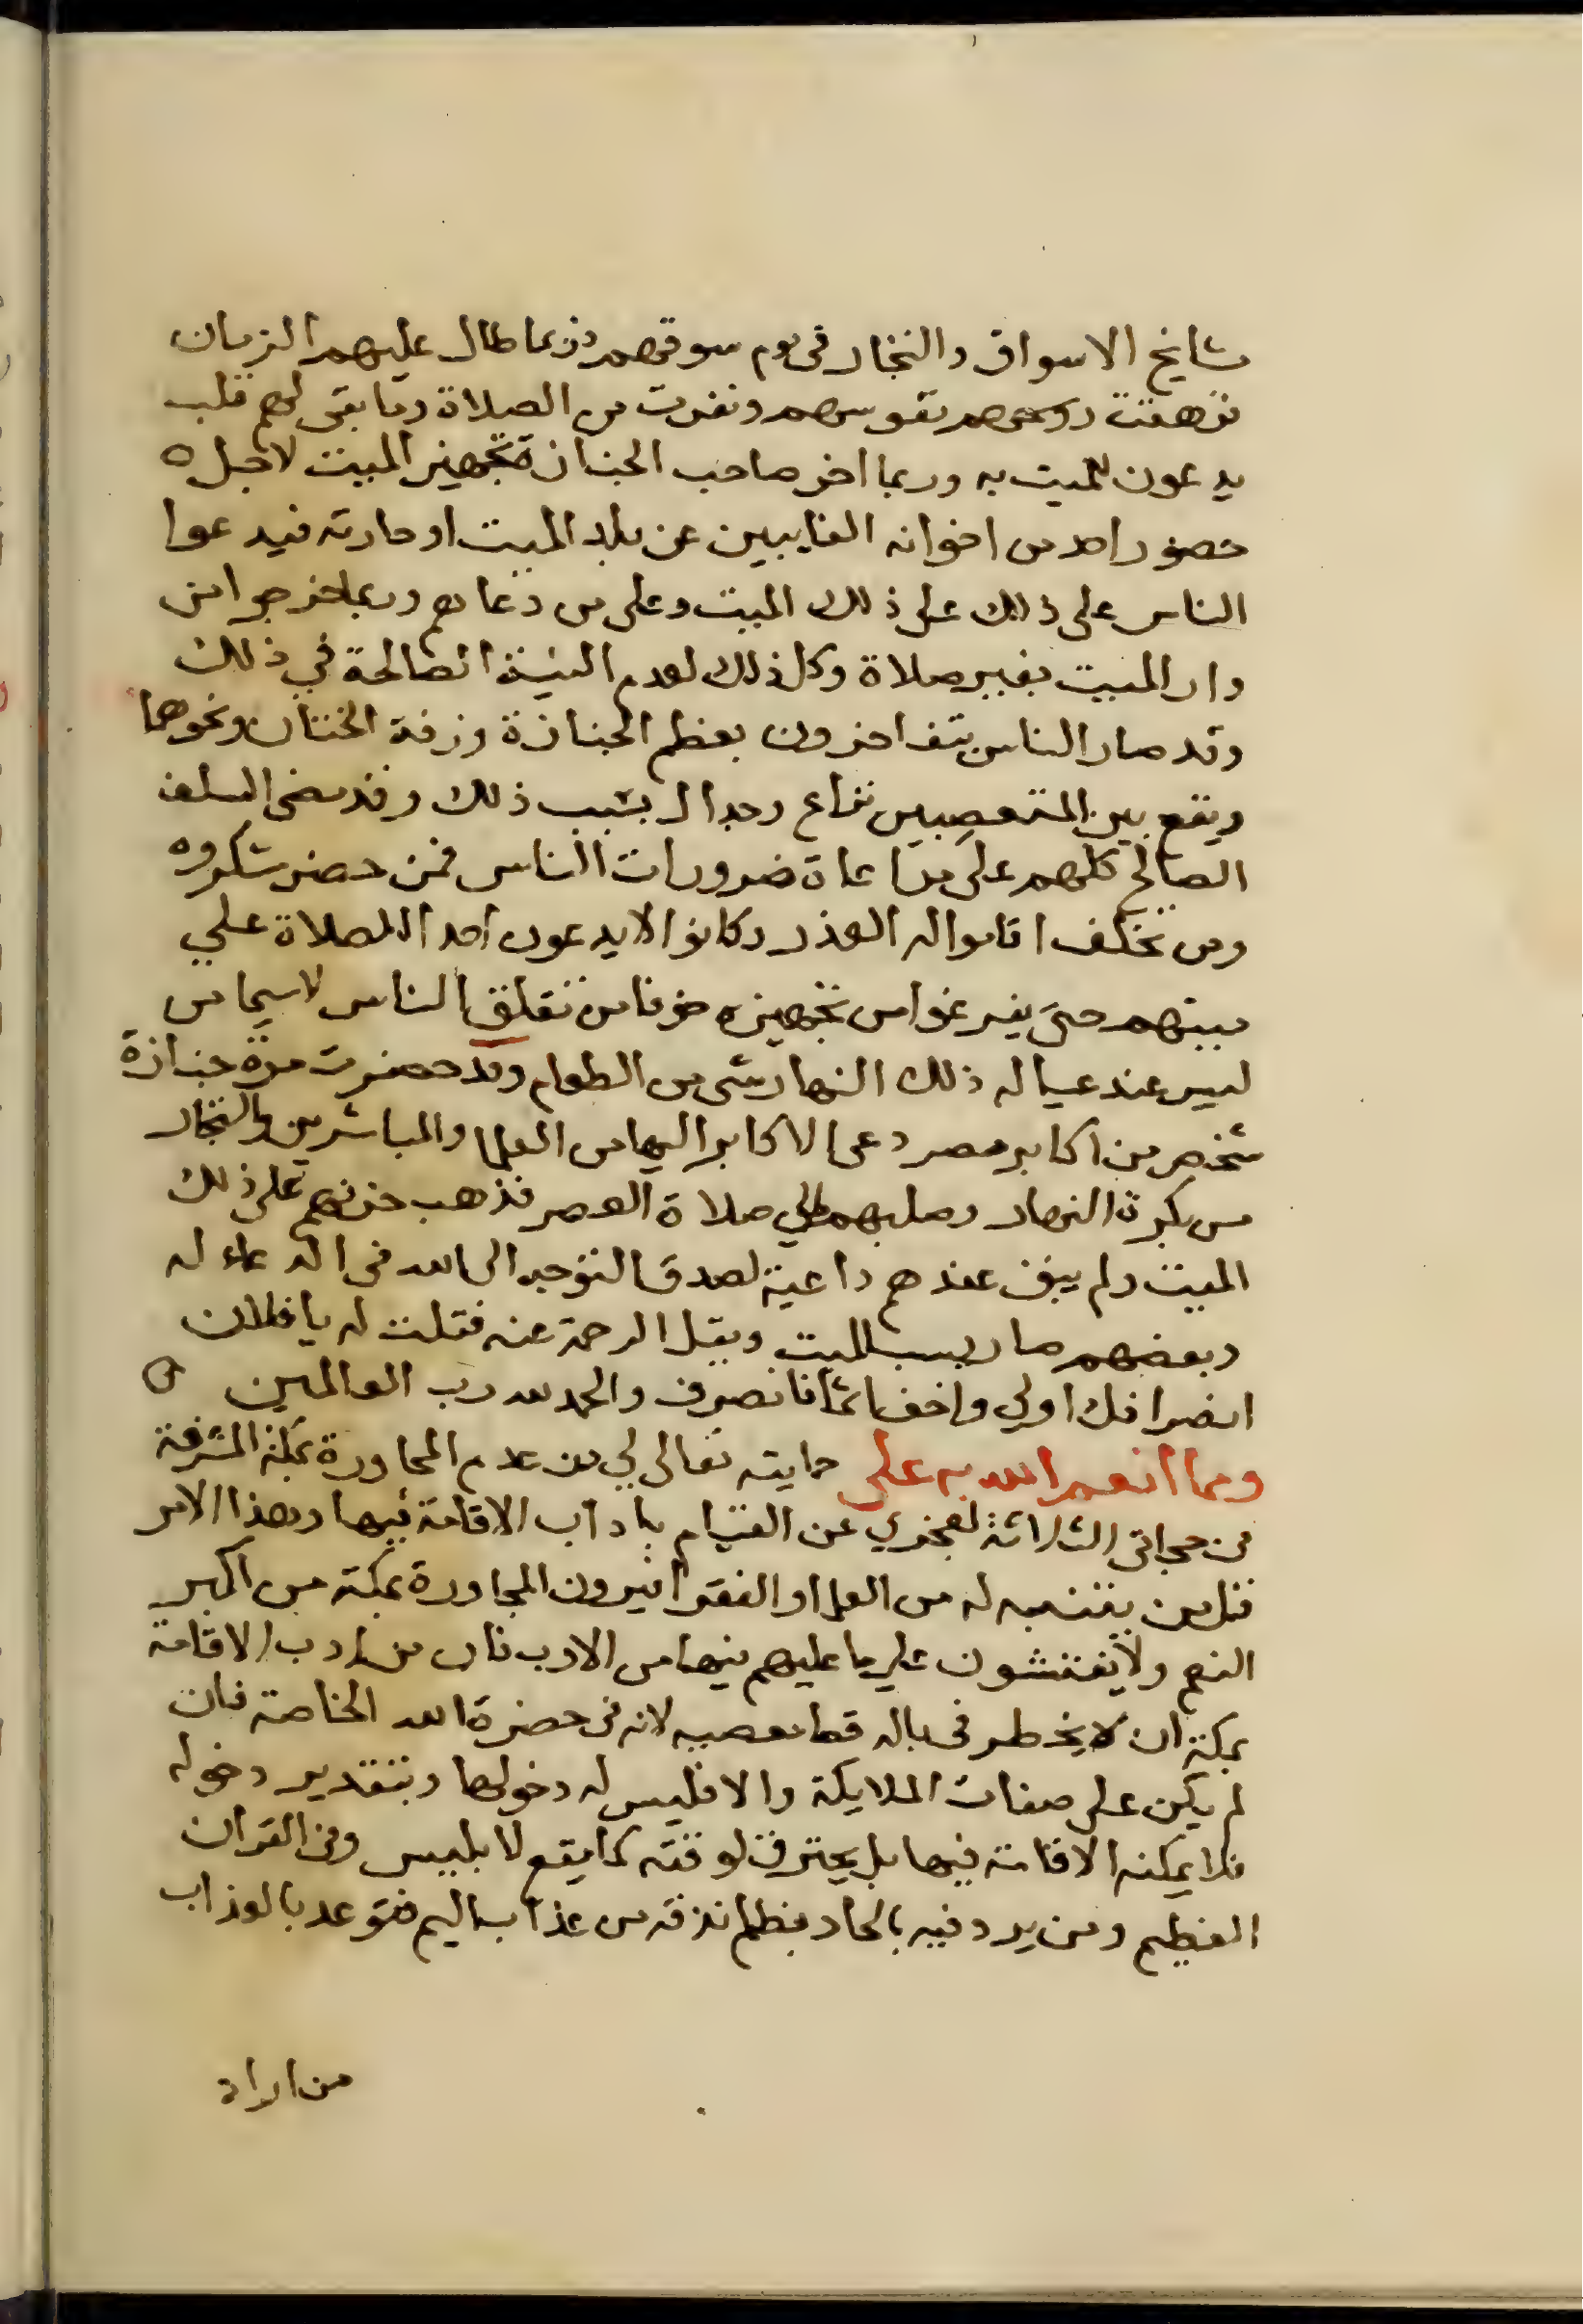 شايخ الاسواق والتجار في يوم سوقهم وربما طال عليهم الزمان
فزهقت روحهم نفوسهم ونفرت من الصلاة وما بقى لهم قلب
يدعون للميت به وربما اخر صاحب الجنازة تجهيز الميت لاجل ه
حضور احد من اخوانه الغايبين عن بلد الميت او حارته فيدعوا
الناس على ذلك على ذلك الميت وعلى من دعاهم وربما خرجوا من
دار الميت بغير صلاة وكل ذلك لعدم النية الصالحة في ذلك
وقد صار الناس يتفاخرون بعظم الجنازة وزفة الختان ونحوهما
ويقع بين المتعصبين نزاع وجدال بسبب ذلك وقد مضى السلف
الصالح كلهم على مراعاة ضرورات الناس فمن حضر شكروه
ومن تخلف اقاموا له العذر وكانوا لا يدعون احدا للصلاة علي
ميتهم حتى يفرغوا من تجهيزه خوفا من تقلق الناس لاسيما من
ليس عند عياله ذلك النهار شى من الطعام وقد حضرت مرة جنازة
شخص من اكابر مصر دعى الاكابر اليها من العلما والمباشرين والتجار
من بكرة النهار وصلبهم الي صلاة العصر فذهب حزنهم على ذلك
الميت ولم يبق عندهم داعية لصدق التوجه الى الله في الدعاء له
وبعضهم صار يسب الميت ويقل الرحمة عنه فقلت له يا فلان
انصرافك اولي واخف اثما فانصرف والحمد لله رب العالمين ه
ومما انعم الله به على حمايته تعالى لي من عدم المجاورة بمكة المشرفة
في حجاتى الثلاثة لعجزي عن القيام باداب الاقامة فيها وهذا الامر
قل من يتنبه له من العلما والفقرا فيرون المجاورة بمكة من اكبر
النعم ولا يفتشون علي ما عليهم فيها من الادب فان من ادب الاقامة
بمكة ان لا يخطر في باله قط معصيه لانه في حضرة الله الخاصة فان
لم يكن على صفات الملايكة والا فليس له دخولها وبتقدير دخوله
فلا يمكنه الاقامة فيها بل يحترق لوقته كما يقع لابليس وفي القران
العظيم ومن يرد فيه بالحاد بظلم نذقه من عذاب اليم فتوعد بالعذاب
من اراد